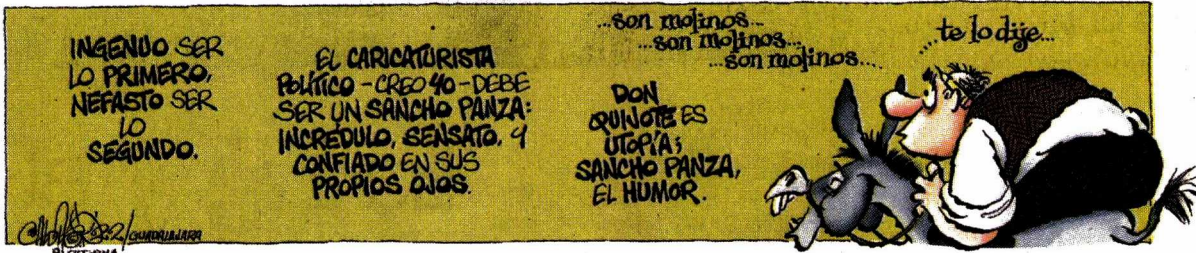 INGENUO SER
LO PRIMERO,
NEFASTO SER
LO
SEGUNDO.
EL CARICATURISTA
POLÍTICO - CREO YO - DEBE
SER UN SANCHO PANZA:
INCRÉDULO, SENSATO, Y
CONFIADO EN SUS
PROPIOS OJOS.
...son molinos...
...son molinos...
...son molinos....
DON
QUIJOTE ES
UTOPÍA;
SANCHO PANZA,
EL HUMOR.
...te lo dije...
GUADALAJARA